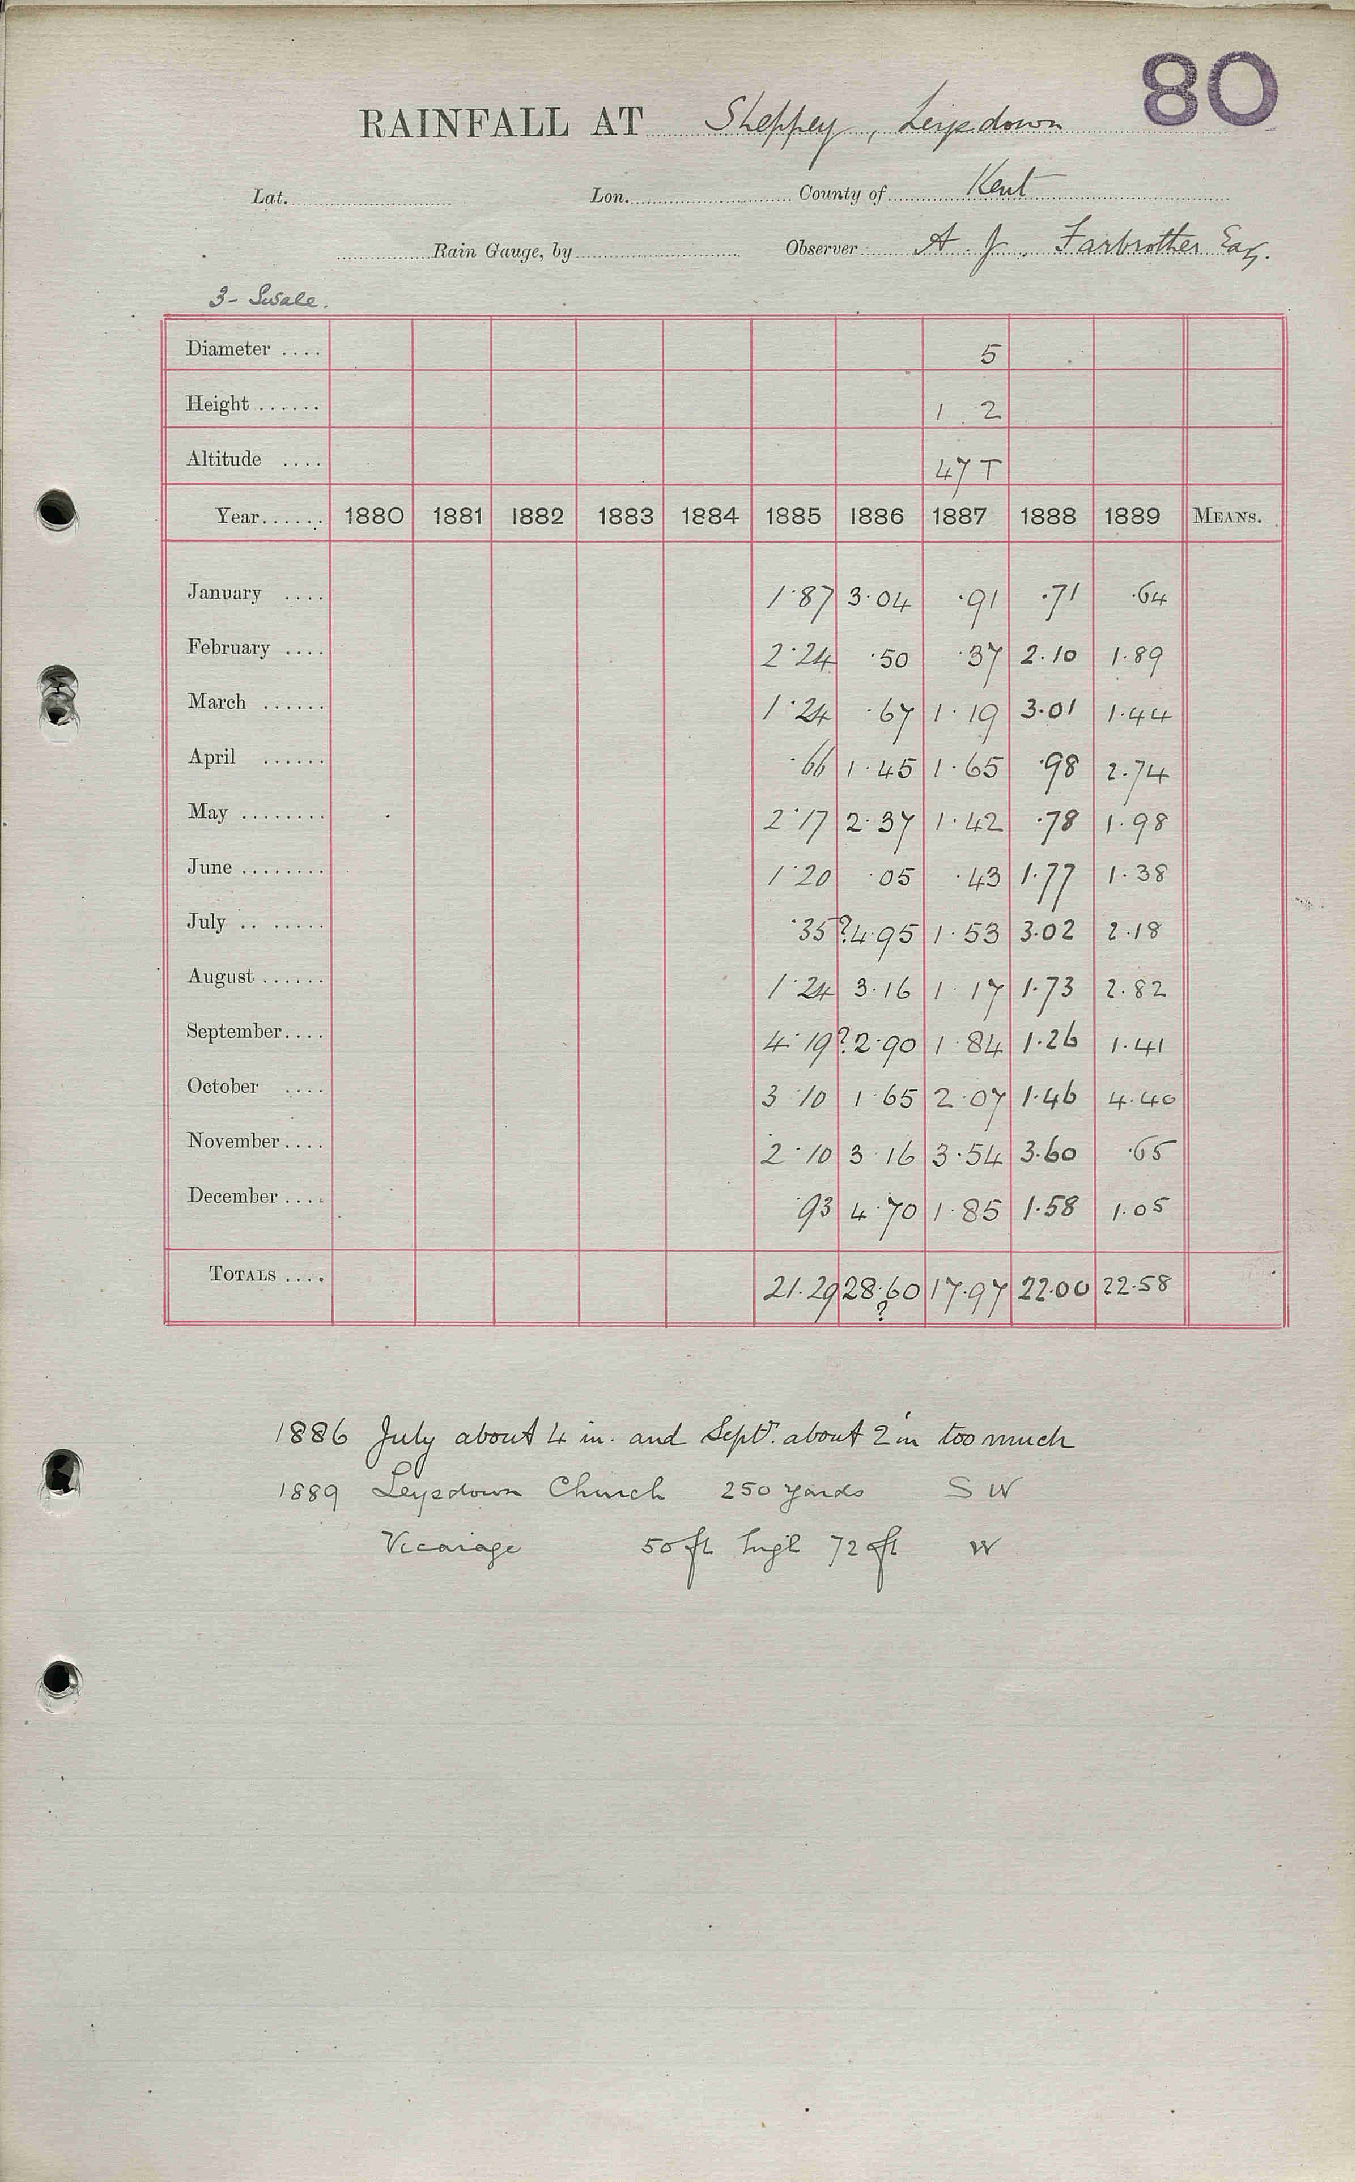 80
RAINFALL AT Sheppey, Leysdown
Lat. Lon. County of Kent
Rain Gauge, by Observer A. J. Farbrother Esq.
3- Swale.
Diameter .... 5
Height ...... 1 2
Altitude .... 47 T
Year...... 1880 1881 1882 1883 1884 1885 1886 1887 1888 1889 MEANS.
January .... 1.87 3.04 .91 .71 .64
February .... 2.24 .50 .37 2.10 1.89
March ...... 1.24 .67 1.19 3.01 1.44
April ...... .66 1.45 1.65 .98 2.74
May ........ 2.17 2.37 1.42 .78 1.98
June ........ 1.20 .05 .43 1.77 1.38
July .. ..... .35 ?4.95 1.53 3.02 2.18
August ...... 1.24 3.16 1.17 1.73 2.82
September.... 4.19 ?2.90 1.84 1.26 1.41
October .... 3.10 1.65 2.07 1.46 4.40
November.... 2.10 3.16 3.54 3.60 .65
December .... .93 4.70 1.85 1.58 1.05
TOTALS .... 21.29 28.60 ? 17.97 22.00 22.58
1886 July about 4 in. and Septr. about 2 in too much
1889 Leysdown Church 250 yards S W
Vicarage 50 ft high 72 ft W